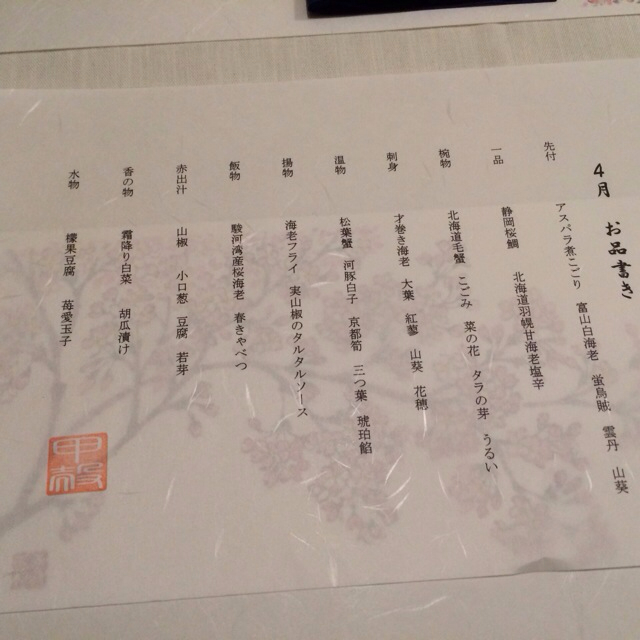 4月　お品書き
先付　アスパラ煮こごり　富山白海老　蛍烏賊　雲丹　山葵
一品　静岡桜鯛　北海道羽幌甘海老塩辛
椀物　北海道毛蟹　こごみ　菜の花　タラの芽　うるい
刺身　才巻き海老　大葉　紅蓼　山葵　花穂
温物　松葉蟹　河豚白子　京都筍　三つ葉　琥珀餡
揚物　海老フライ　実山椒のタルタルソース
飯物　駿河湾産桜海老　春きゃべつ
赤出汁　山椒　小口葱　豆腐　若芽
香の物　霜降り白菜　胡瓜漬け
水物　檬果豆腐　苺愛玉子
甲殻